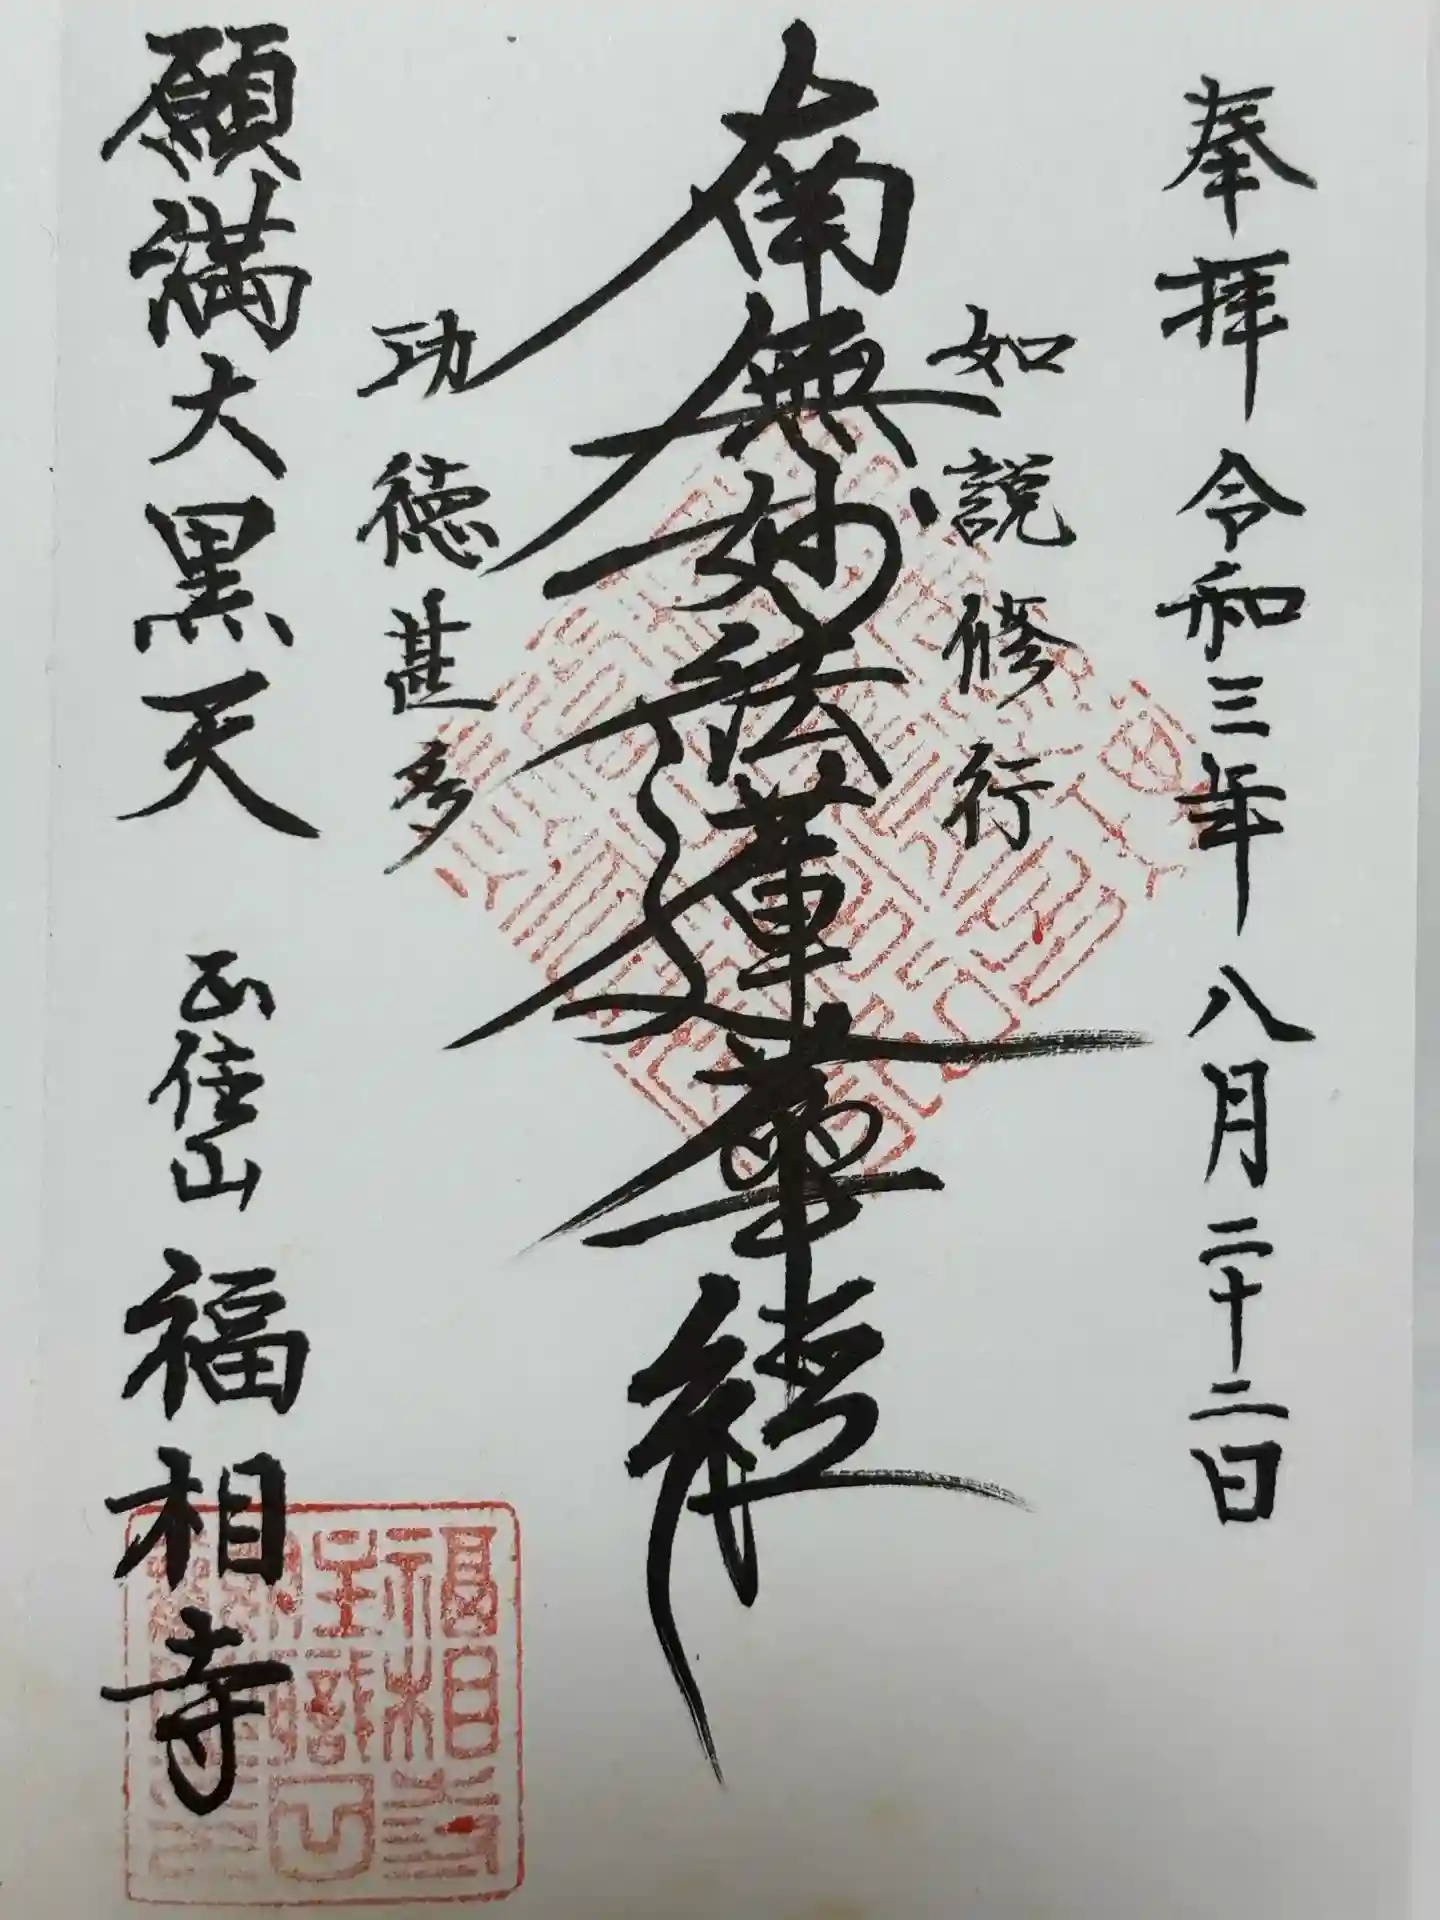 奉拝 令和三年 八月二十二日
如説修行
南無妙法蓮華経
功徳甚多
願満大黒天 正住山 福相寺
福相寺